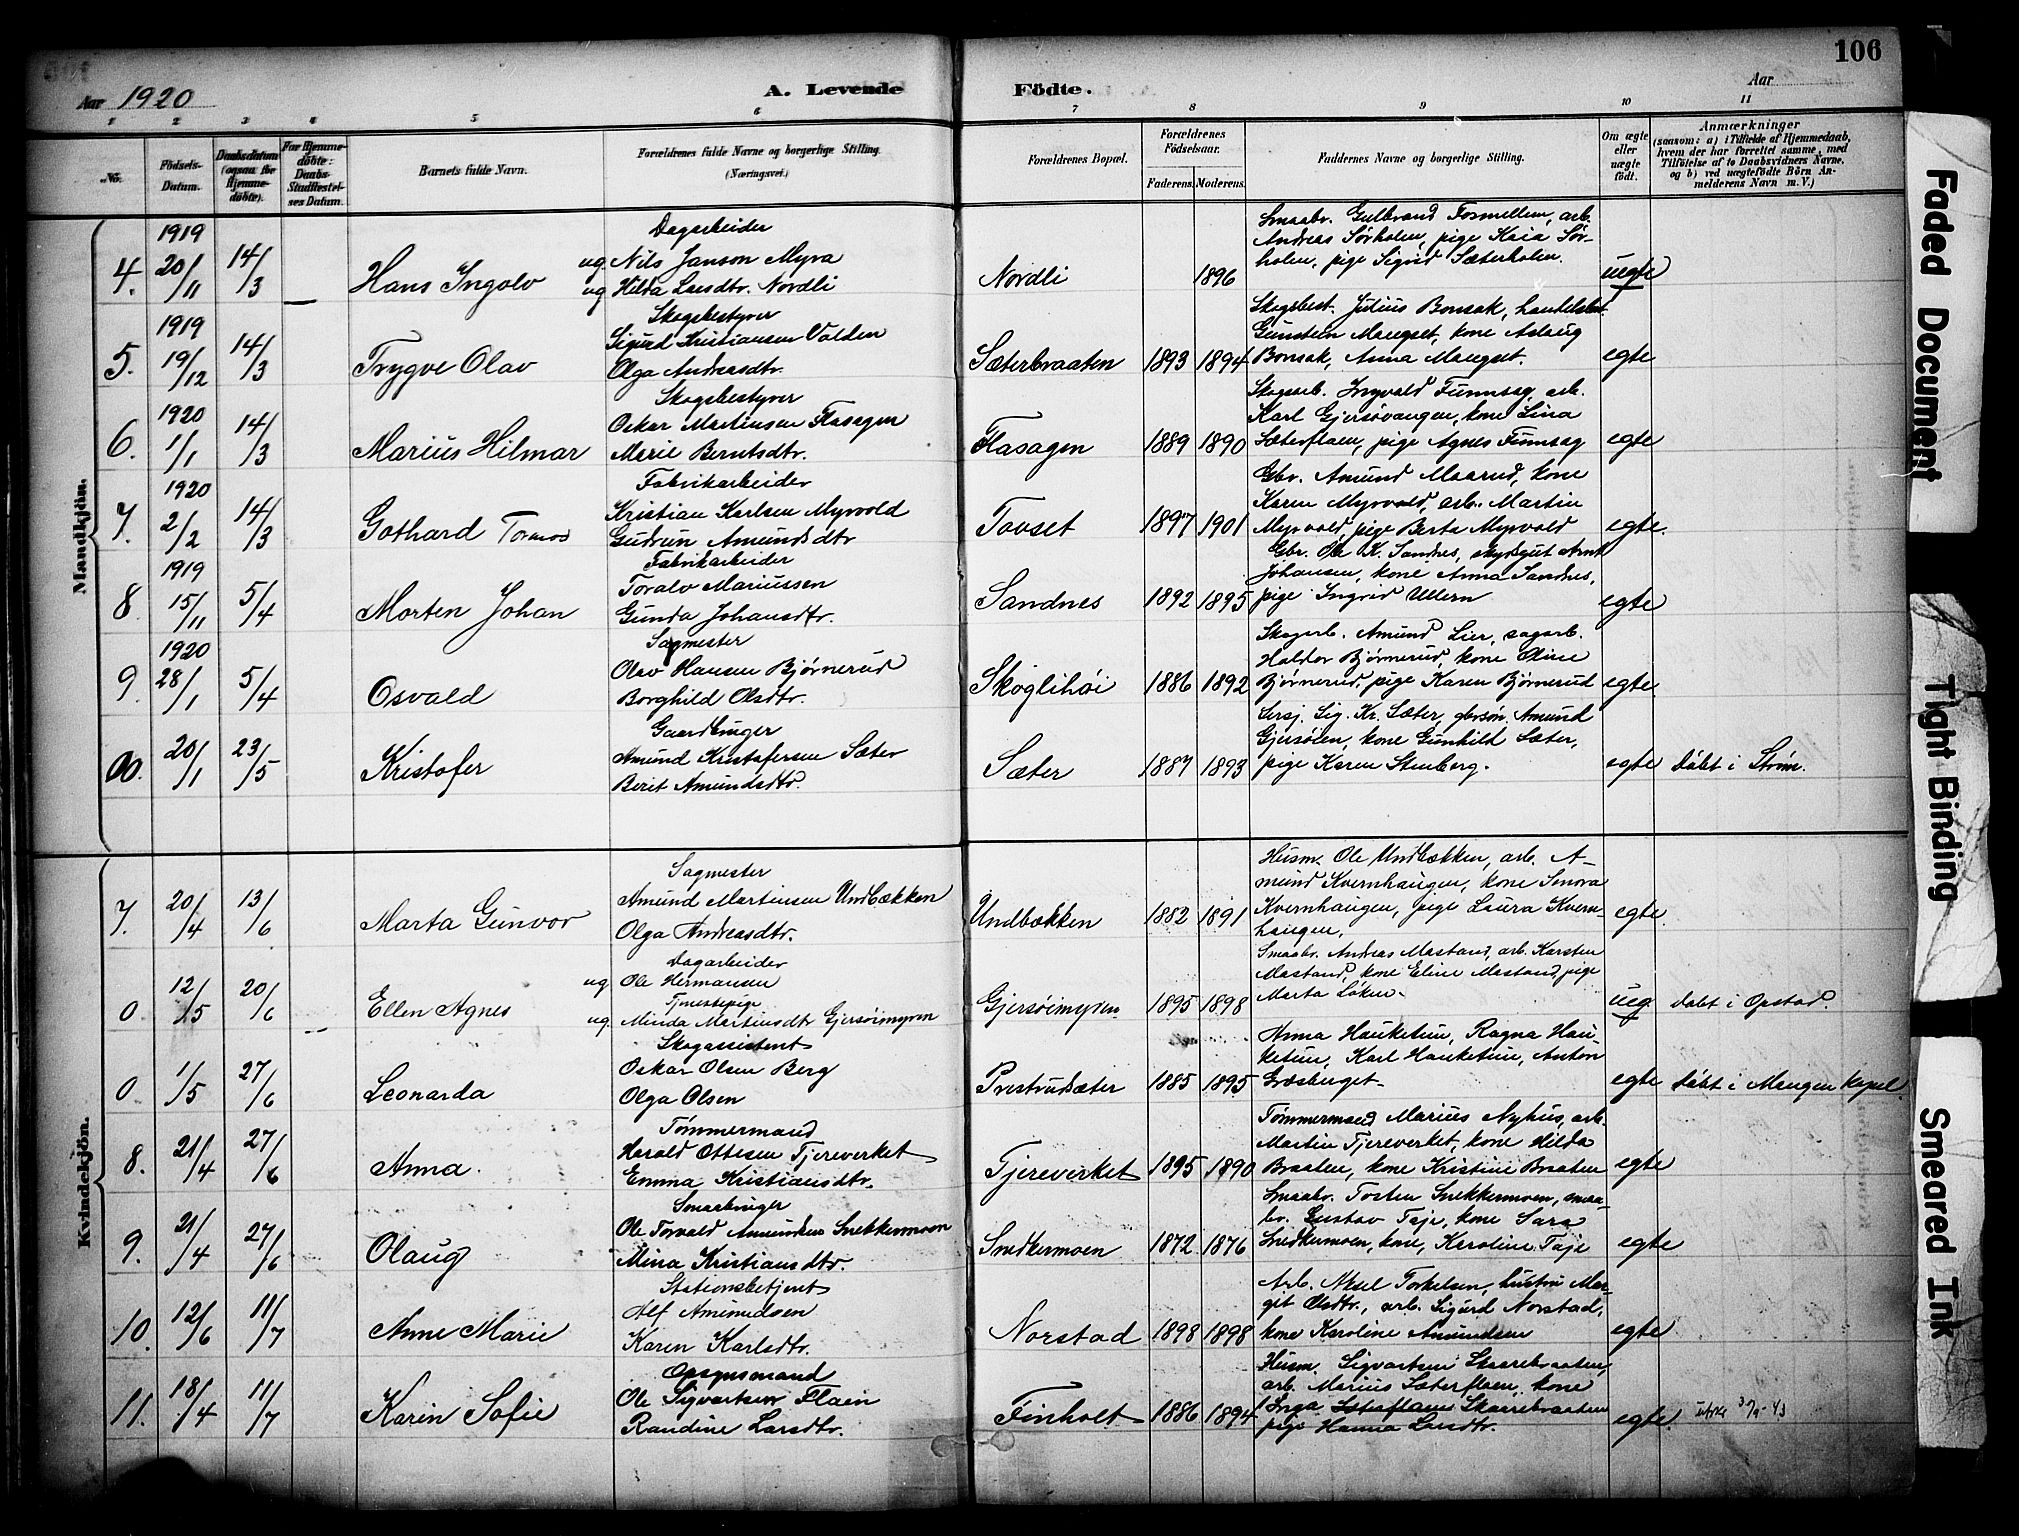 106
Aar 1920
A. Levende Födte.
Aar
1 2 3 4 5 6 7 8 9 10 11
No.
Födsels-Datum.
Daabsdatum (ogsaa for Hjemmedöbte).
For Hjemmedöbte: Daabs-Stadfæstelses Datum.
Barnets fulde Navn.
Forældrenes fulde Navne og borgerlige Stilling. (Næringsvei.)
Forældrenes Bopæl.
Forældrenes Födselsaar.
Faderens. Moderens.
Faddernes Navne og borgerlige Stilling.
Om ægte eller uægte födt.
Anmærkninger
(saasom: a) i Tilfælde af Hjemmedaab, hvem der har forrettet samme, med Tilföielse af to Daabsvidners Navne, og b) ved uægtefödte Börn Anmelderens Navn m. V.)
Mandkjön.
4. 1919 20/11 14/3 —
Hans Ingolv
Dagarbeider
ug. Nils Janson Myra
ug Hilda Larsdtr. Nordli
Nordli 1896
Smaabr. Gulbrand Fosmellem, arb.
Andreas Sørholen, pige Kaia Sør-
holen, pige Sigrid Sæterholen.
uegte
5. 1919 19/12 14/3
Trygve Olav
Skogsbestyrer
Sigurd Kristiansen Volden
Olga Andreasdtr.
Sæterbraaten 1893 1894
Skogsbest. Julius Bonsak,
Gunstein Mangset, kone Aslaug
Bonsak, Anna Mangset.
egte
6. 1920 1/1 14/3
Marius Hilmar
Skogsbestyrer
Oskar Martinsen Flasagen
Marie Berntsdtr.
Flasagen 1889 1890
Skogsarb. Ingvald Funnsag, arb.
Karl Gjersøvangen, kone Lina
Sæterflaen, pige Agnes Funnsag
egte
7. 1920 2/2 14/3
Gothard Tormod
Fabrikarbeider
Kristian Karlsen Myrvold
Gudrun Amundsdtr
Tovset 1897 1901
Gbr. Amund Maarud, kone
Karen Myrvold, arb. Martin
Myrvold, pige Berta Myrvold
egte.
8 1919 15/11 5/4
Morten Johan
Fabrikarbeider
Toralv Mariussen
Gunda Johansdtr.
Sandnes 1892 1895
Gbr. Ole K. Sandnes, skydsgut Arnt
Johansen, kone Anna Sandnes,
pige Ingrid Ullern
egte
9 1920 28/1 5/4
Osvald
Sagmester
Olav Hansen Bjørnerud
Borghild Olsdtr.
Skoglihøi 1886 1892
Skogarb. Amund Lier, sagarb.
Haldor Bjørnerud, kone Oline
Bjørnerud, pige Karen Bjørnerud
egte
20/1 23/5
Kristofer
Gaardbruger
Amund Kristofersen Sæter
Berit Amundsdtr.
Sæter 1887 1893
Sersj. Sig. Kr. Sæter, gbrsøn. Amund
Gjersøien, kone Gunhild Sæter,
pige Karen Stenberg.
egte døbt i Strøm.
Kvindekjön.
7. 20/4 13/6
Marta Gunvor
Sagmester
Amund Martinsen Undbækken
Olga Andreasdtr.
Undbækken 1882 1891
Husm. Ole Undbækken, arb. A-
mund Kvernhaugen, kone Snora
Kvernhaugen, pige Laura Kvern-
haugen,
egte.
0. 12/5 20/6
Ellen Agnes
Dagarbeider
ug Ole Hermansen
Tjenestepige
ug. Minda Martinsdtr Gjersøimyren
Gjersøimyren 1895 1898
Smaabr. Andreas Mastand, arb. Karsten
Mastand, kone Eline Mastand, pige
Marta Løken.
ueg døbt i Opstad
0. 1/5 27/6
Leonarda
Skogassistent
Oskar Olsen Berg
Olga Olsen
Prestrudsæter 1885 1895
Anna Hauketun, Ragna Hau-
ketun, Karl Hauketun, Anton
Græsberget
egte døbt i Mangen kapel.
8. 21/4 27/6
Anna.
Tømmermand
Harald Ottesen Tjereverket
Emma Kristiansdtr.
Tjereverket 1895 1890
Tømmermand Marius Nyhus, arb.
Martin Tjereverket, kone Hilda
Braaten, kone Kristine Braaten
egte
9. 21/4 27/6
Olaug
Smaabruger
Ole Torvald Amundsen Snekkermoen
Mina Kristiansdtr.
Snekkermoen 1872 1876
Smaabr. Tosten Snekkermoen, smaa-
br. Gustav Taje, kone Sara
Snekkermoen, kone, Karoline Taje
egte
10. 12/6 11/7
Anne Marie
Stationsbetjent
Alf Amundsen
Karen Karlsdtr.
Norstad 1898 1898
Arb. Aksel Torkelsen, hustru Mar-
git Olsdtr., arb. Sigurd Norstad,
kone Karoline Amundsen
egte
11. 18/4 11/7
Karin Sofie
Opsynsmand
Ole Sigvartsen Flaen
Randine Larsdtr.
Finholt 1886 1894
Husm. Sigvartsen Skarrebraaten,
arb. Marius Sæterflaen, kone
Inga Skarrebraaten
pige Hanna Larsdtr.
egte.
Faded Document
Tight Binding
Smeared Ink